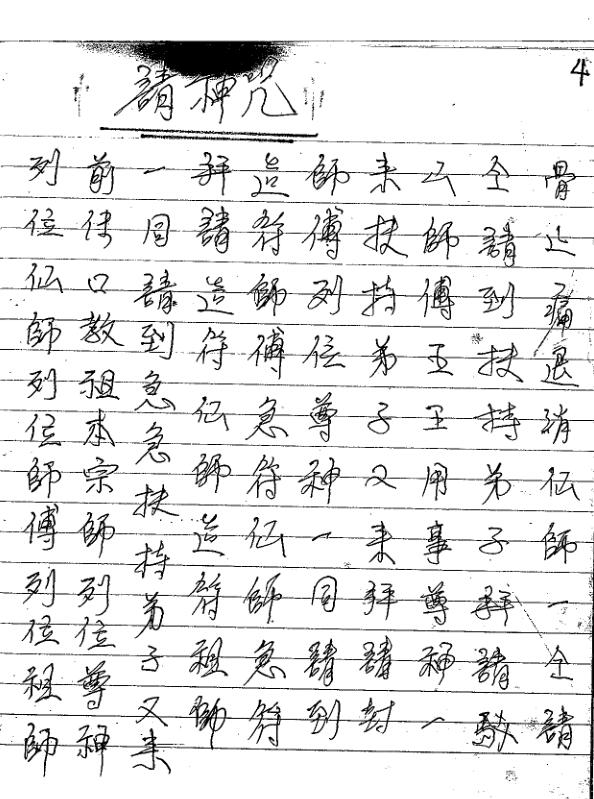 請神咒
4
列位仙師列位師傅列位祖師
前传口教祖本宗師列位尊神
一同請到急急扶持弟子又来
拜請造符仙師造符祖師
造符師傅急符仙師急符
師傅列位尊神一同請到
来扶持弟子又来拜請封
師傅玉王用事尊神一
仝請到扶持弟子拜請駁
骨止痛退消仙師一仝請